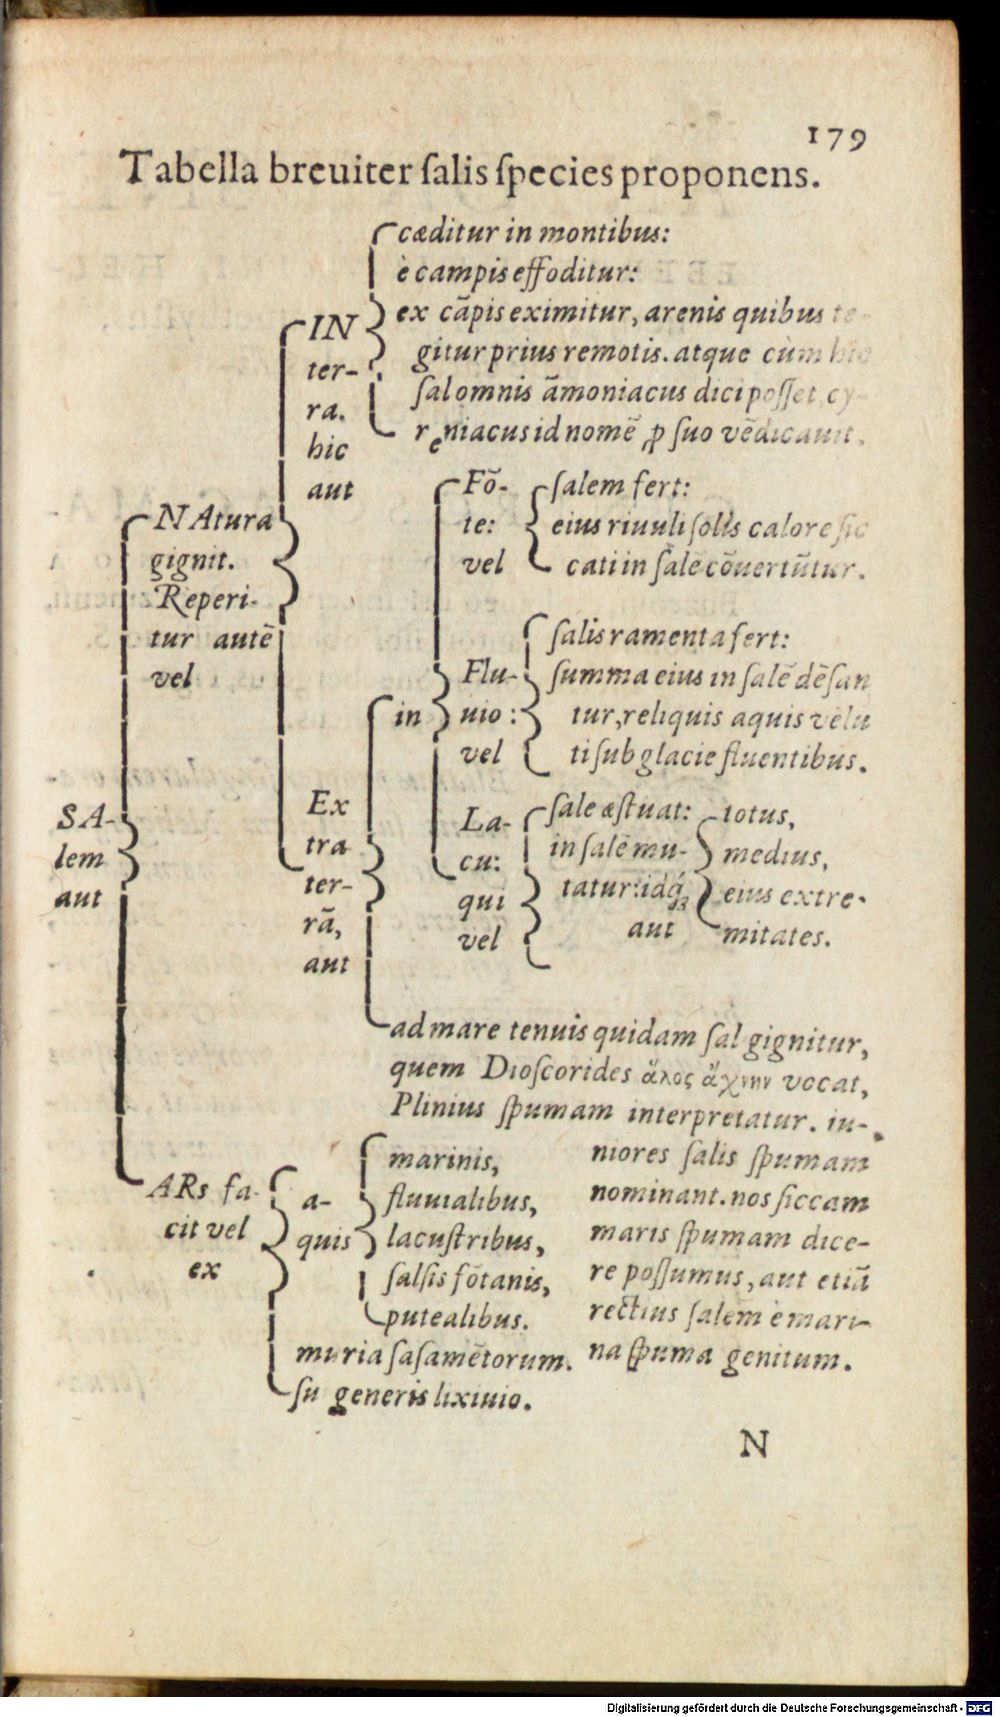 179
Tabella breuiter ſalis ſpecies proponens.
SA-
lem
aut
NAtura
gignit.
Reperi-
tur autē
vel
IN
ter-
ra.
hic
aut
cæditur in montibus:
è campis effoditur:
ex cāpis eximitur, arenis quibus te-
gitur prius remotis. atque cùm hic
ſal omnis āmoniacus dici poſſet, cy-
reniacus id nomē ꝓ ſuo vēdicauit.
Ex
tra
ter-
rā,
aut
in
Fō-
te:
vel
ſalem fert:
eius riuuli ſolis calore ſic
cati in ſalē cōuertūtur.
Flu-
uio:
vel
ſalis ramenta fert:
ſumma eius in ſalē dēſan
tur, reliquis aquis velu
ti ſub glacie fluentibus.
La-
cu:
qui
vel
ſale æſtuat:
in ſalē mu-
tatur: idq́ꝫ
aut
totus,
medius,
eius extre-
mitates.
ad mare tenuis quidam ſal gignitur,
quem Dioſcorides ἅλος ἄχνην vocat,
Plinius ſpumam interpretatur. iu-
niores ſalis ſpumam
nominant. nos ſiccam
maris ſpumam dice-
re poſſumus, aut etiā
rectius ſalem è mari-
na ſpuma genitum.
ARs fa-
cit vel
ex
a-
quis
marinis,
fluuialibus,
lacuſtribus,
ſalſis fōtanis,
putealibus.
muria ſaſamētorum.
ſu generis lixiuio.
N
Digitalisierung gefördert durch die Deutsche Forschungsgemeinschaft - DFG